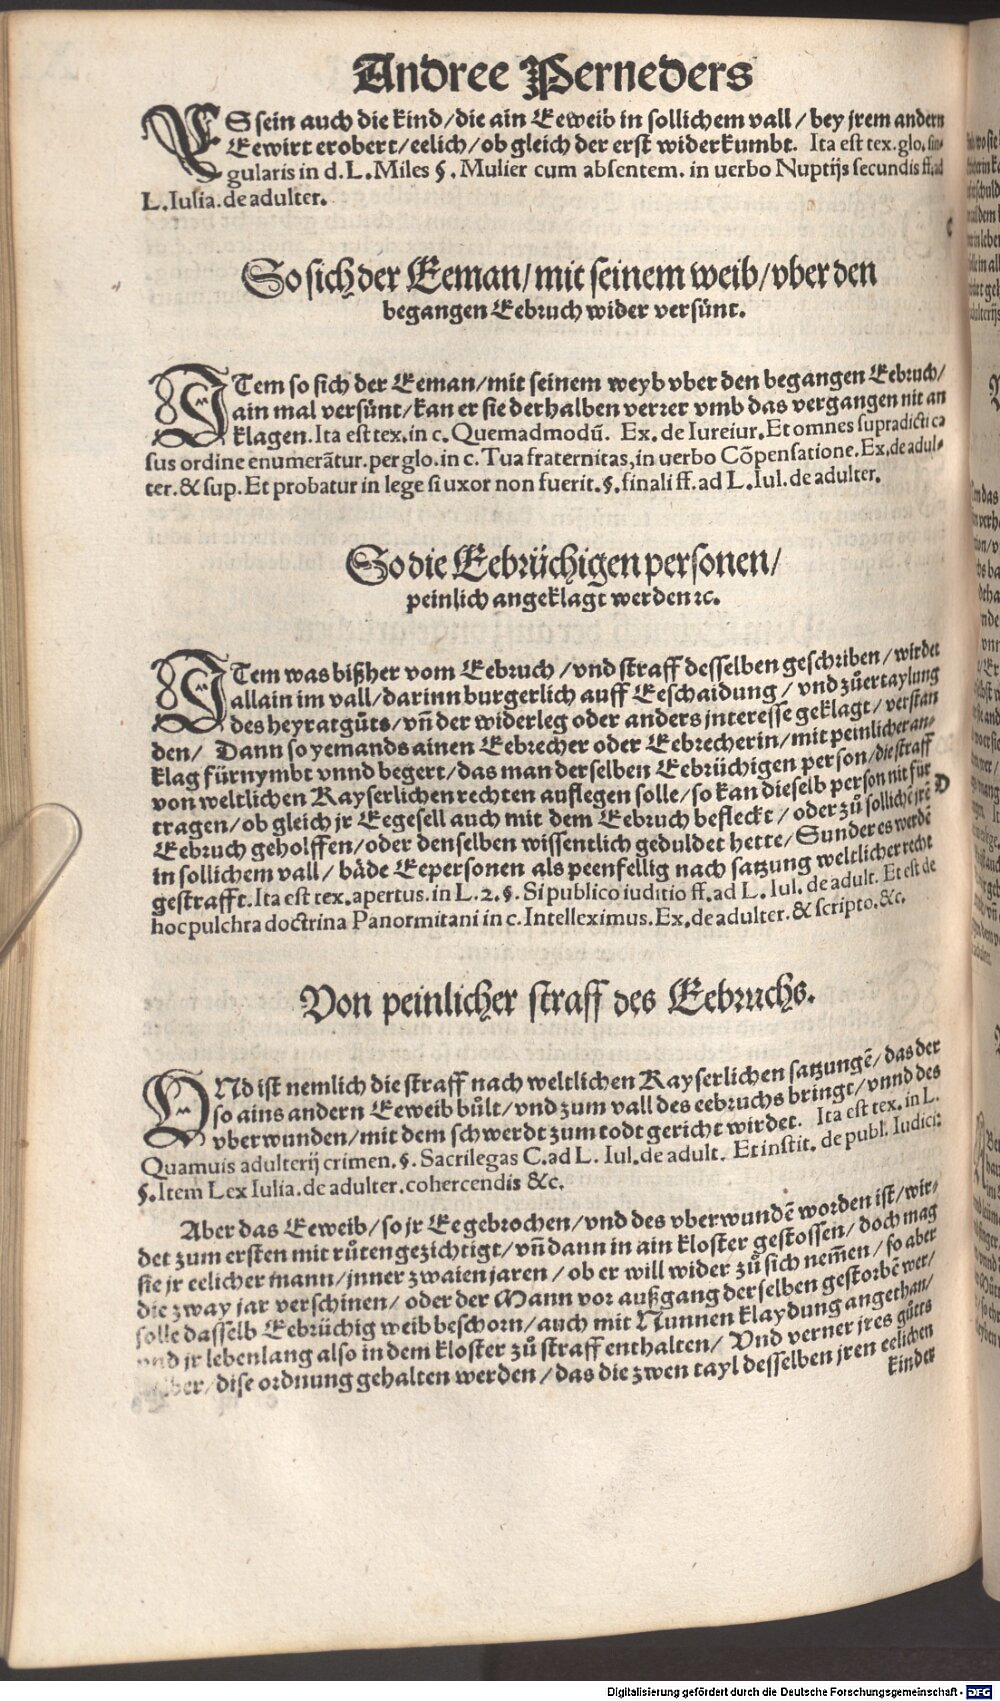 Andree Perneders
ES sein auch die kind/die ain Eeweib in sollichem vall/bey jrem andern
Eewirt erobert/eelich/ob gleich der erst widerkumbt. Ita est tex. glo. sin-
gularis in d. L. Miles §. Mulier cum absentem. in uerbo Nuptijs secundis ff. ad
L. Iulia. de adulter.
So sich der Eeman/mit seinem weib/vber den
begangen Eebruch wider versünt.
ITem so sich der Eeman/mit seinem weyb vber den begangen Eebruch/
ain mal versünt/kan er sie derhalben verrer vmb das vergangen nit an
klagen. Ita est tex. in c. Quemadmodū. Ex. de Iureiur. Et omnes supradicti ca
sus ordine enumerātur. per glo. in c. Tua fraternitas, in uerbo Cōpensatione. Ex. de adul-
ter. & sup. Et probatur in lege si uxor non fuerit. §. finali ff. ad L. Iul. de adulter.
So die Eebrüchigen personen/
peinlich angeklagt werden ꝛc.
ITem was bißher vom Eebruch/vnd straff desselben geschriben/wirdet
allain im vall/darinn burgerlich auff Eeschaidung/vnd zůertaylung
des heyratgůts/vñ der widerleg oder anders interesse geklagt/verstan
den/ Dann so yemands ainen Eebrecher oder Eebrecherin/mit peinlicher an-
klag fürnymbt vnnd begert/das man derselben Eebrüchigen person/die straff
von weltlichen Kayserlichen rechten auflegen solle/so kan dieselb person nit für
tragen/ob gleich jr Eegesell auch mit dem Eebruch befleckt/oder zů sollichē jrē D
Eebruch geholffen/oder denselben wissentlich geduldet hette/Sunder es werdē
in sollichem vall/bäde Eepersonen als peenfellig nach satzung weltlicher recht
gestrafft. Ita est tex. apertus. in L. 2. §. Si publico iuditio ff. ad L. Iul. de adult. Et est de
hoc pulchra doctrina Panormitani in c. Intelleximus. Ex. de adulter. & scripto. &c.
Von peinlicher straff des Eebruchs.
VNd ist nemlich die straff nach weltlichen Kayserlichen satzungē/das der
so ains andern Eeweib bůlt/vnd zum vall des eebruchs bringt/vnnd des
vberwunden/mit dem schwerdt zum todt gericht wirdet. Ita est tex. in L.
Quamuis adulterij crimen. §. Sacrilegas C. ad L. Iul. de adult. Et instit. de publ. Iudici:
§. Item Lex Iulia. de adulter. cohercendis &c.
Aber das Eeweib/so jr Ee gebrochen/vnd des vberwundē worden ist/wir-
det zum ersten mit růten gezichtigt/vñ dann in ain kloster gestossen/doch mag
sie jr eelicher mann/jnner zwaien jaren/ob er will wider zů sich nem̄en/so aber
die zway jar verschinen/oder der Mann vor außgang derselben gestorbē wer/
solle dasselb Eebrüchig weib beschorn/auch mit Nunnen klaydung angethan/
vnd jr lebenlang also in dem kloster zů straff enthalten/ Vnd verner jres gůtts
halber/dise ordnung gehalten werden/das die zwen tayl desselben jren eelichen
kinder
Digitalisierung gefördert durch die Deutsche Forschungsgemeinschaft - DFG